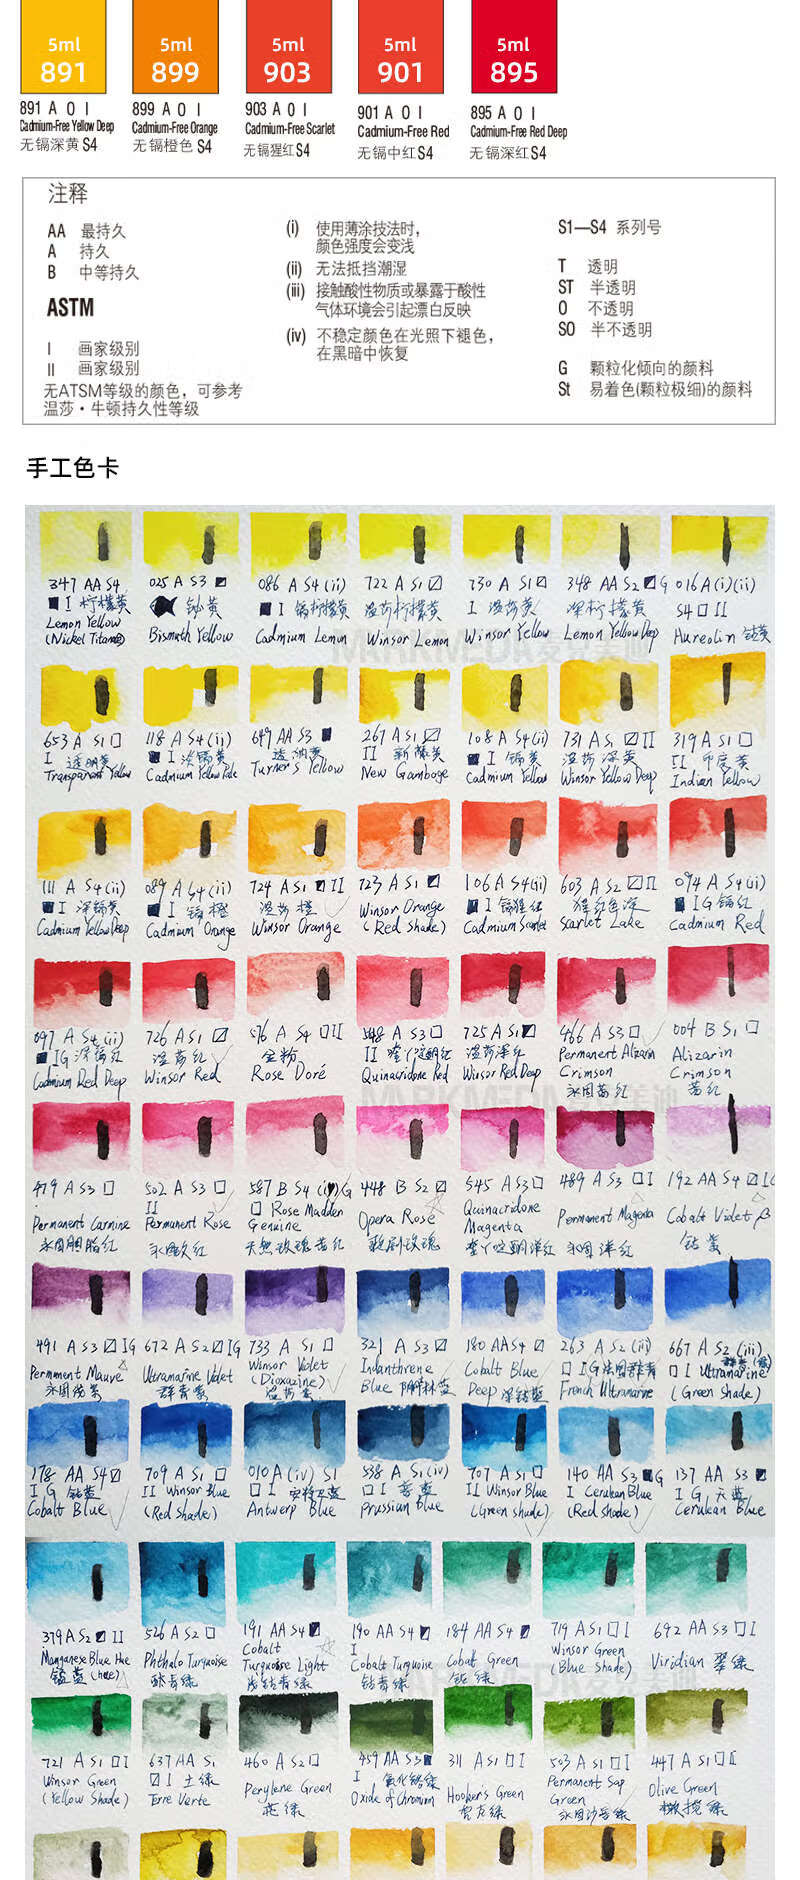 5ml 5ml 5ml 5ml 5ml
891 899 903 901 895
891 A O I 899 A O I 903 A O I 901 A O I 895 A O I
Cadmium-Free Yellow Deep Cadmium-Free Orange Cadmium-Free Scarlet Cadmium-Free Red Cadmium-Free Red Deep
无镉深黄 S4 无镉橙色 S4 无镉猩红 S4 无镉中红 S4 无镉深红 S4
注释
AA 最持久
A 持久
B 中等持久
ASTM
I 画家级别
II 画家级别
无ATSM等级的颜色，可参考
温莎·牛顿持久性等级
(i) 使用薄涂技法时，
颜色强度会变浅
(ii) 无法抵挡潮湿
(iii) 接触酸性物质或暴露于酸性
气体环境会引起漂白反映
(iv) 不稳定颜色在光照下褪色，
在黑暗中恢复
S1—S4 系列号
T 透明
ST 半透明
O 不透明
SO 半不透明
G 颗粒化倾向的颜料
St 易着色(颗粒极细)的颜料
手工色卡
347 AA S4 025 A S3 086 A S4 (ii) 722 A S1 730 A S1 348 AA S2 G 016 A (i)(ii)
I 柠檬黄 铋黄 I 镉柠檬黄 温莎柠檬黄 I 温莎黄 深柠檬黄 S4 II
Lemon Yellow Bismuth Yellow Cadmium Lemon Winsor Lemon Winsor Yellow Lemon Yellow Deep Aureolin 钴黄
(Nickel Titanate)
653 A S1 118 A S4 (ii) 649 AA S3 267 A S1 108 A S4 (ii) 731 A S1 II 319 A S1
I 透明黄 I 淡镉黄 透纳黄 II 新藤黄 I 镉黄 温莎深黄 II 印度黄
Transparent Yellow Cadmium Yellow Pale Turner's Yellow New Gamboge Cadmium Yellow Winsor Yellow Deep Indian Yellow
111 A S4 (ii) 089 A S4 (ii) 724 A S1 II 723 A S1 106 A S4 (ii) 603 A S2 II 094 A S4 (ii)
I 深镉黄 I 镉橙 温莎橙 Winsor Orange I 镉猩红 猩红色淀 I G 镉红
Cadmium Yellow Deep Cadmium Orange Winsor Orange (Red Shade) Cadmium Scarlet Scarlet Lake Cadmium Red
097 A S4 (ii) 726 A S1 576 A S4 II 548 A S3 725 A S1 466 A S3 004 B S1
I G 深镉红 温莎红 金粉 II 喹吖啶酮红 温莎深红 Permanent Alizarin Alizarin
Cadmium Red Deep Winsor Red Rose Doré Quinacridone Red Winsor Red Deep Crimson Crimson
永固茜红 茜红
479 A S3 502 A S3 587 B S4 G 448 B S2 545 A S3 489 A S3 I 192 AA S4
II Rose Madder Quinacridone
Permanent Carmine Permanent Rose Genuine Opera Rose Magenta Permanent Magenta Cobalt Violet
永固胭脂红 永固玫红 天然玫瑰茜红 歌剧玫瑰 喹吖啶酮洋红 永固洋红 钴紫
491 A S3 IG 672 A S2 IG 733 A S1 321 A S3 180 AA S4 263 A S2 (ii) 667 A S2 (iii)
Permanent Mauve Ultramarine Violet Winsor Violet Indanthrene Cobalt Blue I G 法国群青 I Ultramarine
永固锰紫 群青紫 (Dioxazine) Blue 阴丹林蓝 Deep 深钴蓝 French Ultramarine (Green Shade)
温莎紫
178 AA S4 709 A S1 010 A (iv) S1 538 A S1 (iv) 707 A S1 140 AA S3 G 137 AA S3
I G 钴蓝 II Winsor Blue I 安特卫蓝 I 普蓝 II Winsor Blue I Cerulean Blue I G 天蓝
Cobalt Blue (Red Shade) Antwerp Blue Prussian Blue (Green Shade) (Red Shade) Cerulean Blue
379 A S2 II 526 A S2 191 AA S4 190 AA S4 184 AA S4 719 A S1 I 692 AA S3 I
Manganese Blue Hue Phthalo Turquoise Cobalt I I Winsor Green Viridian 翠绿
锰蓝 (hue) 酞青绿 Turquoise Light Cobalt Turquoise Cobalt Green (Blue Shade)
浅钴青绿 钴青绿 钴绿
721 A S1 I 637 AA S1 460 A S2 459 AA S3 311 A S1 I 503 A S1 I 447 A S1 II
Winsor Green I 土绿 Perylene Green I 氧化铬绿 Hooker's Green Permanent Sap Olive Green
(Yellow Shade) Terre Verte 苝绿 Oxide of Chromium 胡克绿 Green 橄榄绿
永固沙普绿